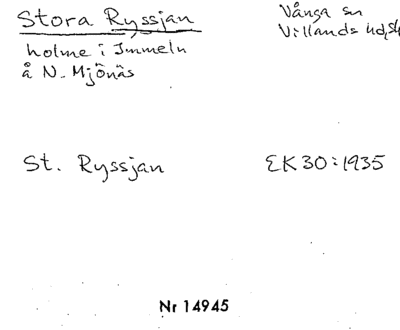 Stora Ryssjan
Vånga sn
Villands hd, Sk
holme i Immeln
å N. Mjönäs
St. Ryssjan
EK 30:1935
Nr 14945